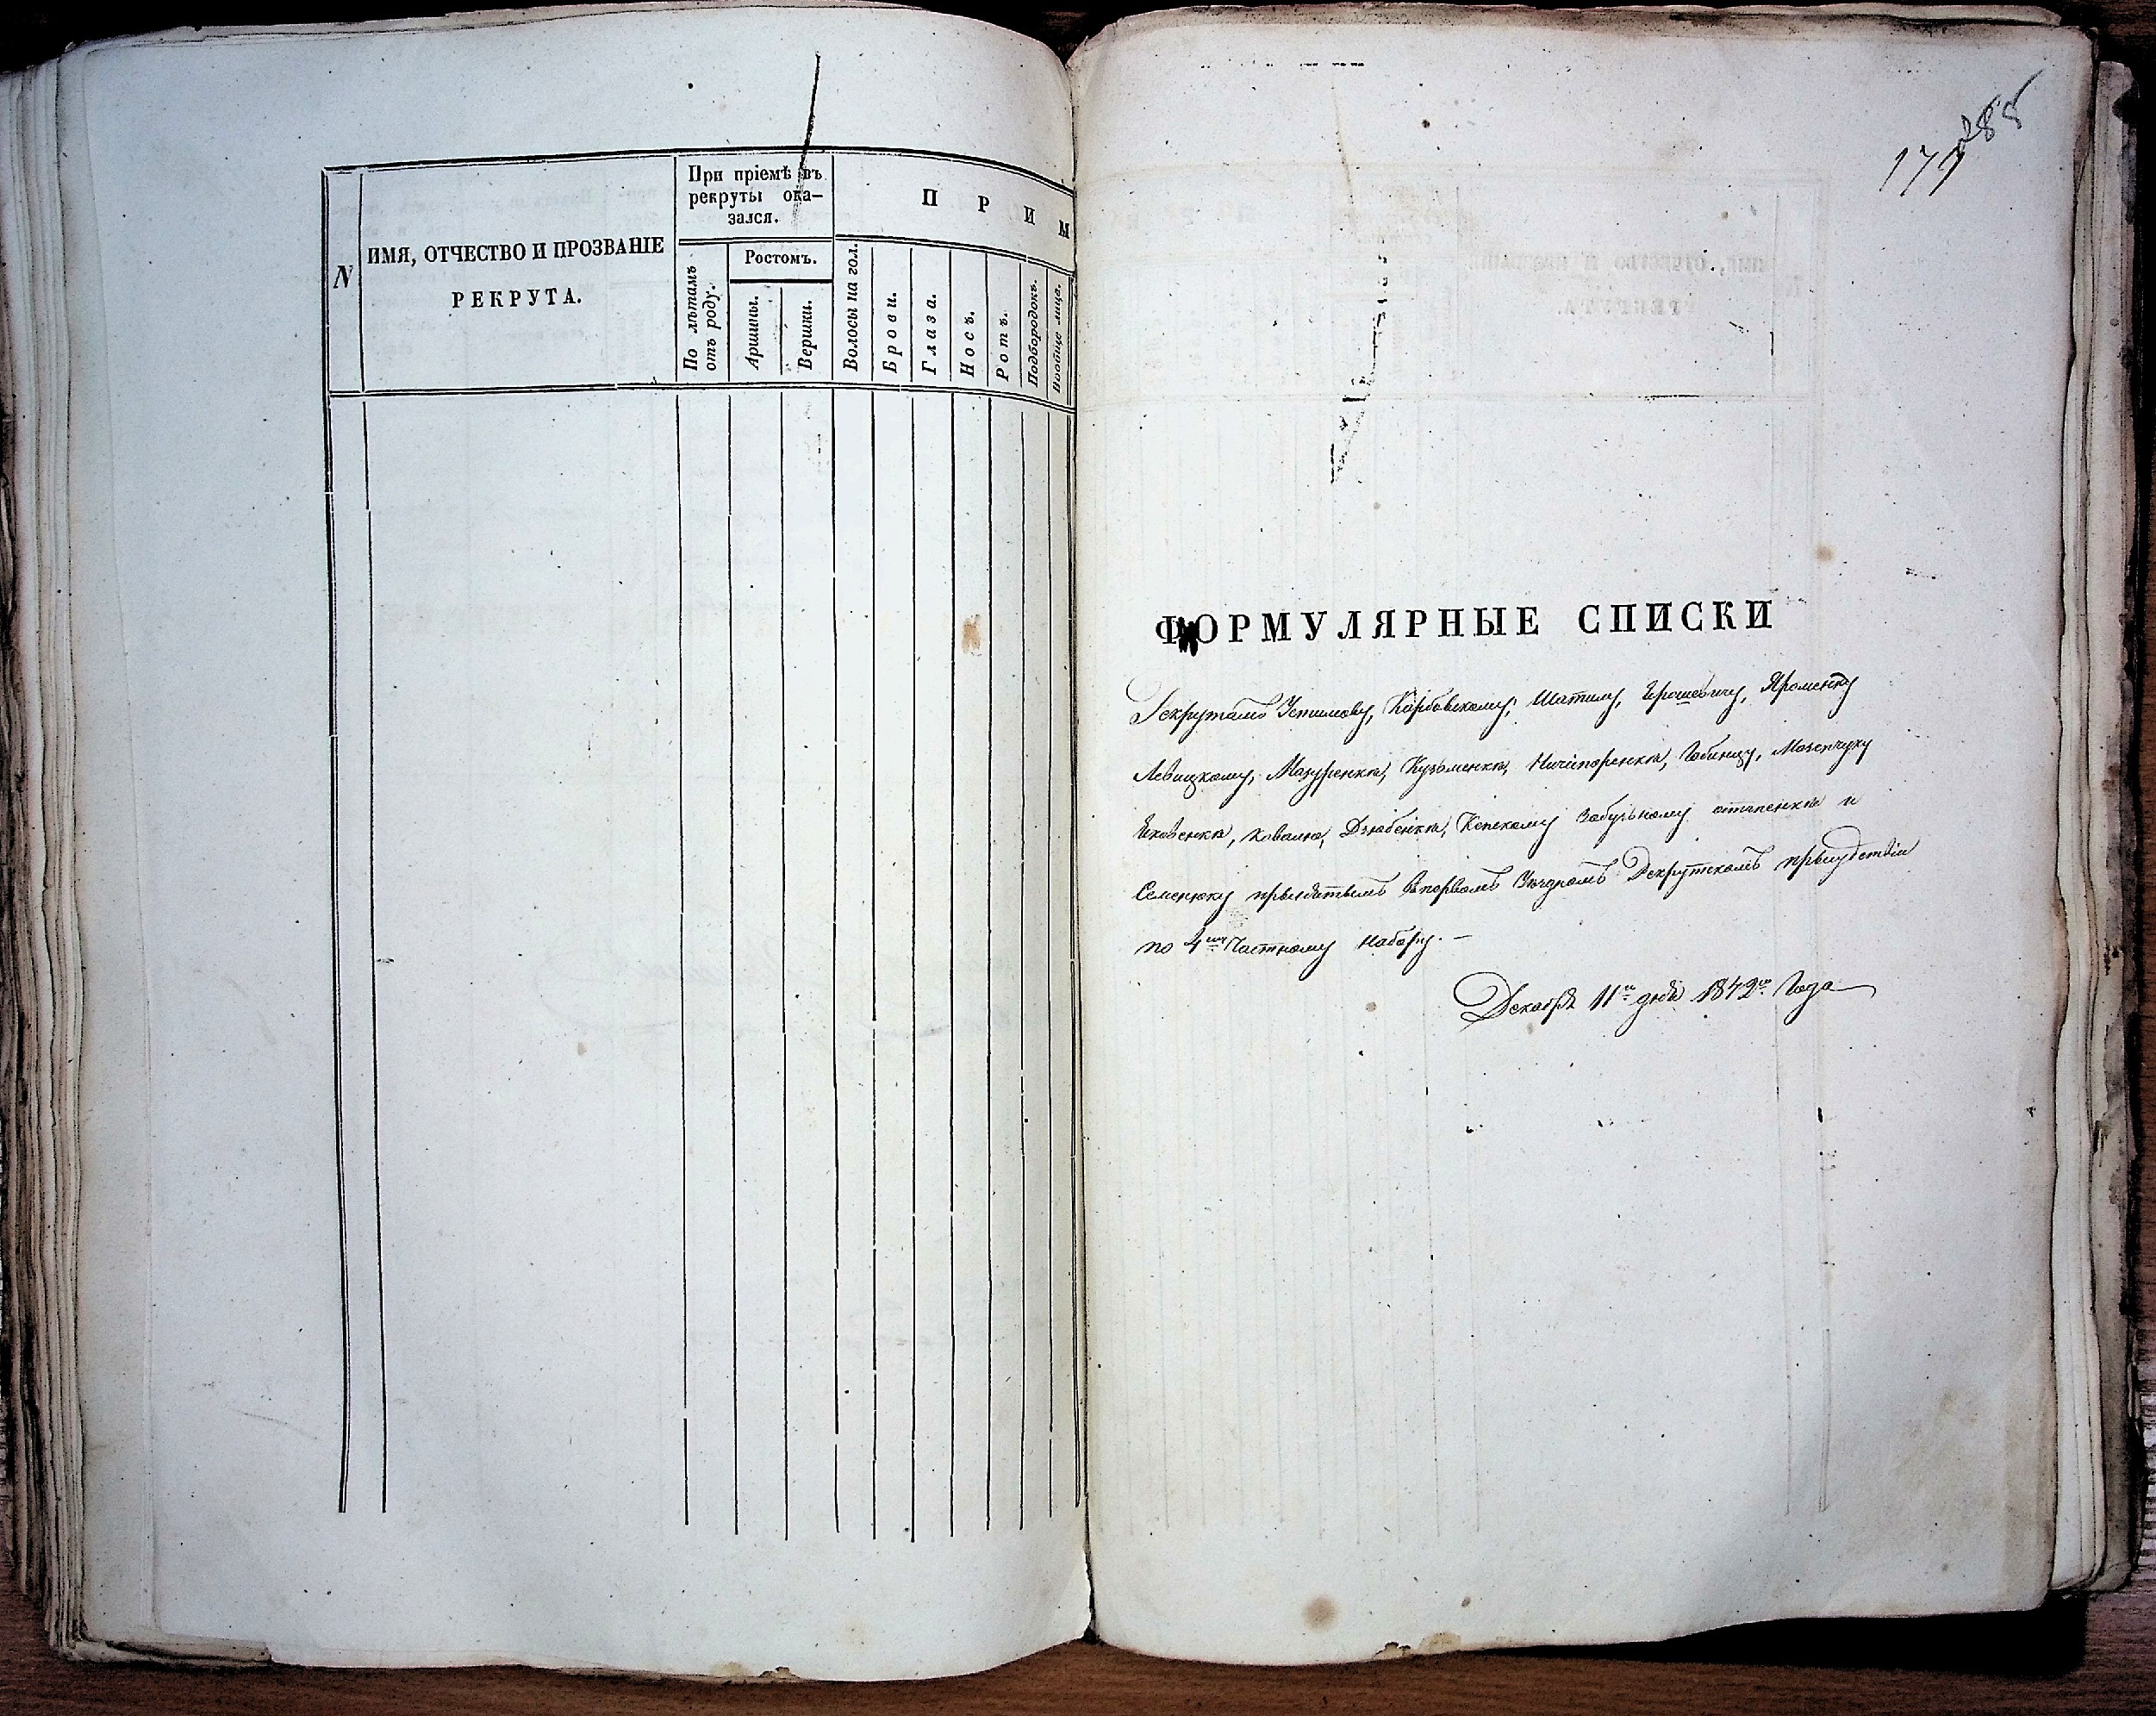 N
ИМЯ, ОТЧЕСТВО И ПРОЗВАНІЕ
РЕКРУТА.
При пріемѣ въ
рекруты ока-
зался.
По лѣтамъ
отъ роду.
Ростомъ.
Аршины.
Вершки.
П Р И М
Волосы на гол.
Брови.
Глаза.
Носъ.
Ротъ.
Подбородокъ.
Вообще лица.
288
177
ФОРМУЛЯРНЫЕ СПИСКИ
Рекрутамъ Устимову, Карбовскому, Шатилу, Ярошевичу, Яроменку
Левицкому, Мазуренкѣ, Кузьменкѣ, Ничипоренкѣ, Мазепчуку
Яковенкѣ, Ковалю, Дзюбенкѣ, Забузьному и
Семенюку принятымъ Рекрутскомъ присудствіи
по 4му Частному набору. —
Декабря 11го дня 1842го Года